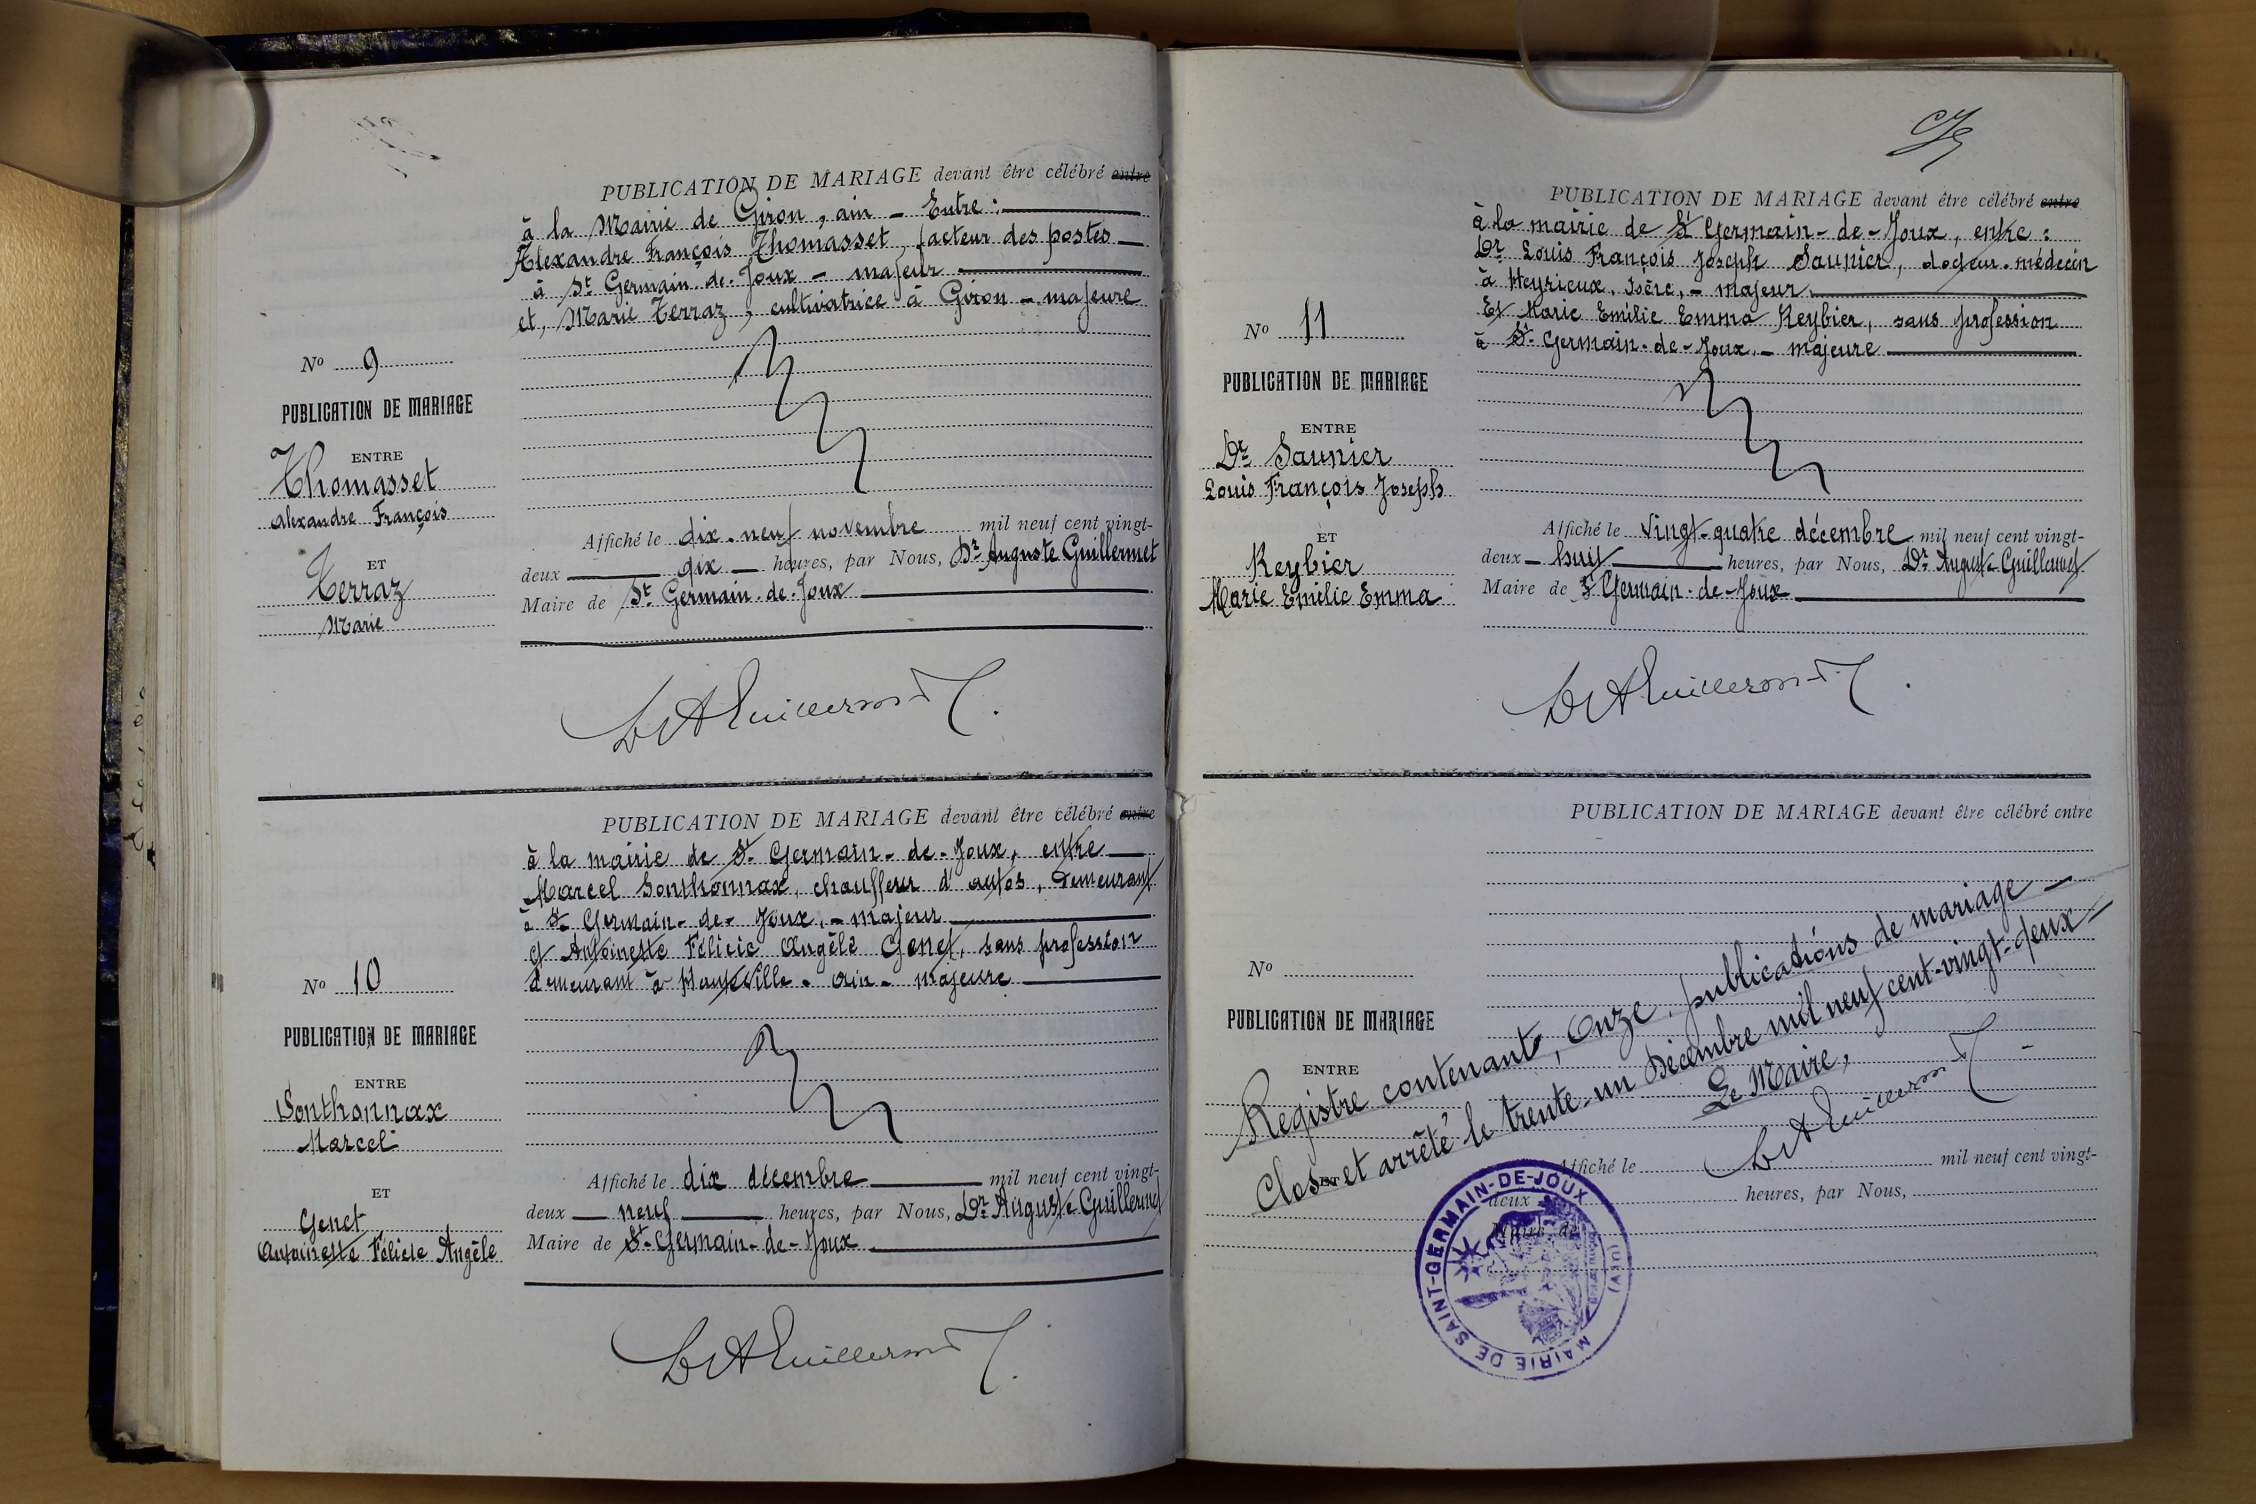 PUBLICATION DE MARIAGE devant être célébré entre
à la Mairie de Giron, ain - Entre :
Alexandre François Thomasset, facteur des postes
à St Germain-de-Joux - majeur
et, Marie Terraz, cultivatrice à Giron - majeure
No 9
PUBLICATION DE MARIAGE
ENTRE
Thomasset
Alexandre François
ET
Terraz
Marie
Affiché le dix-neuf novembre mil neuf cent vingt-
deux dix heures, par Nous, Dr Auguste Guillermet
Maire de St Germain-de-Joux
Dr A Guillermet
PUBLICATION DE MARIAGE devant être célébré entre
à la mairie de St Germain-de-Joux, entre
Marcel Sonthonnax, chauffeur d'autos, demeurant
à St Germain-de-Joux, - majeur
et Antoinette Félicie Angèle Genet, sans profession
demeurant à Hauteville - ain - majeure
No 10
PUBLICATION DE MARIAGE
ENTRE
Sonthonnax
Marcel
ET
Genet
Antoinette Félicie Angèle
Affiché le dix décembre mil neuf cent vingt-
deux neuf heures, par Nous, Dr Auguste Guillermet
Maire de St-Germain-de-Joux
Dr A Guillermet
PUBLICATION DE MARIAGE devant être célébré entre
à la mairie de St Germain-de-Joux, entre :
Dr Louis François Joseph Saunier, docteur-médecin
à Heyrieux, Isère, - majeur
Et Marie Emilie Emma Reybier, sans profession
à St Germain-de-Joux, - majeure
No 11
PUBLICATION DE MARIAGE
ENTRE
Dr Saunier
Louis François Joseph
ET
Reybier
Marie Emilie Emma
Affiché le vingt-quatre décembre mil neuf cent vingt-
deux - huit heures, par Nous, Dr Auguste Guillermet
Maire de St Germain-de-Joux
Dr A Guillermet
PUBLICATION DE MARIAGE devant être célébré entre
No
PUBLICATION DE MARIAGE
ENTRE
Registre contenant, Onze, publications de mariage
Clos et arrêté le trente-un Décembre mil neuf cent-vingt-deux
Le Maire,
Dr A Guillermet
ET
Affiché le mil neuf cent vingt-
deux heures, par Nous,
Maire de
MAIRIE DE SAINT-GERMAIN-DE-JOUX (AIN)